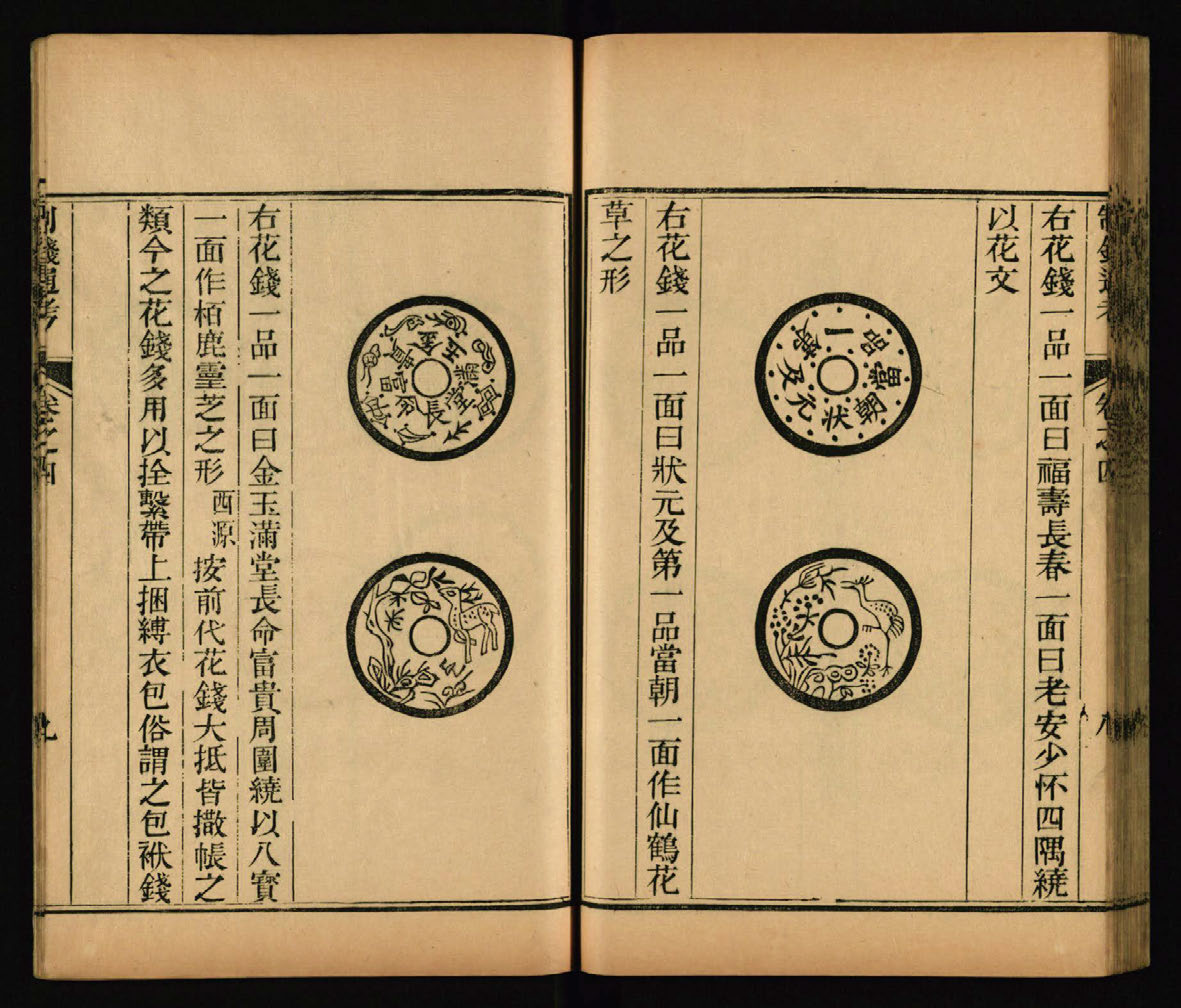 制錢通考 卷之四 八
右花錢一品一面曰福壽長春一面曰老安少怀四隅繞
以花文
狀元及第一品當朝
右花錢一品一面曰狀元及第一品當朝一面作仙鶴花
草之形
金玉滿堂長命富貴
右花錢一品一面曰金玉滿堂長命富貴周圍繞以八寶
一面作栢鹿靈芝之形西源按前代花錢大抵皆撒帳之
類今之花錢多用以拴繫帶上捆縛衣包俗謂之包袱錢
制錢通考 卷之四 九